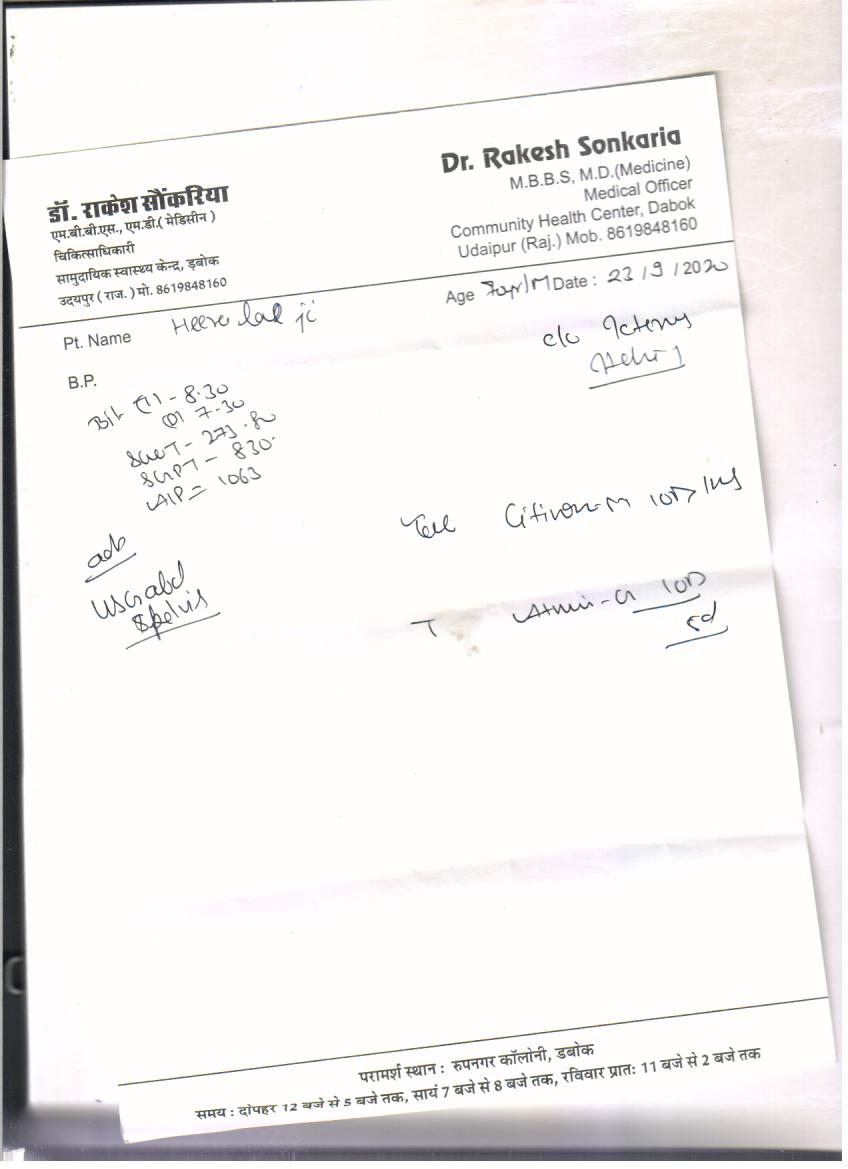 डॉ. राकेश सौंकरिया
एम.बी.बी.एस., एम.डी.( मेडिसीन )
चिकित्साधिकारी
सामुदायिक स्वास्थ्य केन्द्र, ड़बोक
उदयपुर ( राज. ) मो. 8619848160
Dr. Rakesh Sonkaria
M.B.B.S, M.D.(Medicine)
Medical Officer
Community Health Center, Dabok
Udaipur (Raj.) Mob. 8619848160
Pt. Name Heere lal ji
Age 70yr/M Date : 23/9/2020
B.P.
c/o Icterus
Bil (T) - 8.30
(D) 7.30
SGOT - 273.80
SGPT - 830.
ALP = 1063
adv
USG abd
& pelvis
10D
T 10D
परामर्श स्थान : रुपनगर कॉलोनी, डबोक
समय : दोपहर 12 बजे से 5 बजे तक, सायं 7 बजे से 8 बजे तक, रविवार प्रातः 11 बजे से 2 बजे तक